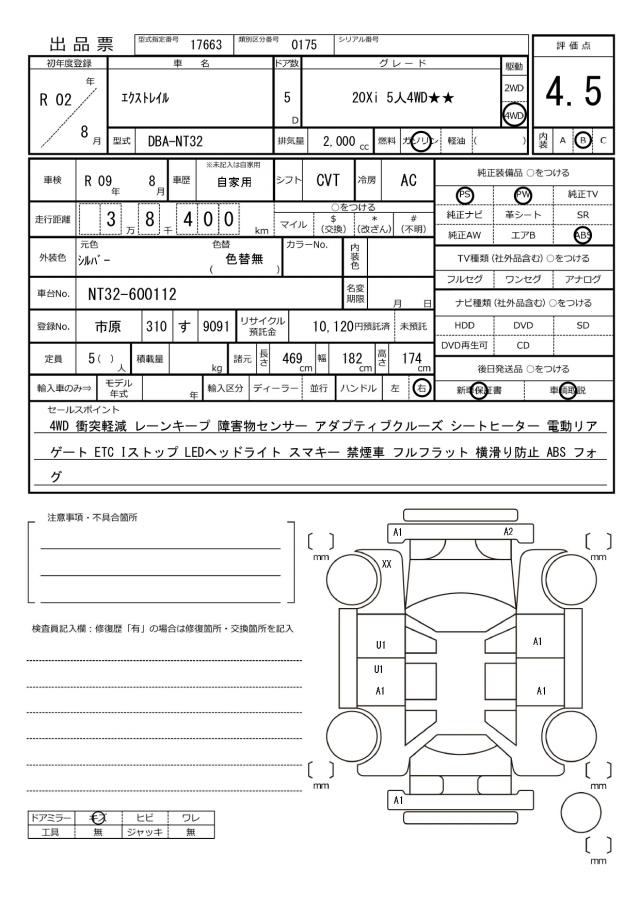 出品票 型式指定番号 17663 類別区分番号 0175 シリアル番号
評価点
4.5
内装 A B C
初年度登録 車名 ドア数 グレード 駆動
R 02 年 8 月
エクストレイル 5 D 20Xi 5人4WD★★ 2WD 4WD
型式 DBA-NT32 排気量 2,000 cc 燃料 ガソリン 軽油 ( )
車検 R 09 年 8 月 車歴 ※未記入は自家用 自家用 シフト CVT 冷房 AC
走行距離 3 万 8 千 4 0 0 km
○をつける
マイル $ (交換) * (改ざん) # (不明)
外装色 元色 シルバー 色替 ( 色替無 ) カラーNo. 内装色
車台No. NT32-600112 名変期限 月 日
登録No. 市原 310 す 9091 リサイクル預託金 10,120円預託済 未預託
定員 5( ) 人 積載量 kg 諸元 長さ 469 cm 幅 182 cm 高さ 174 cm
輸入車のみ⇒ モデル年式 年 輸入区分 ディーラー 並行 ハンドル 左 右
純正装備品 ○をつける
PS PW 純正TV
純正ナビ 革シート SR
純正AW エアB ABS
TV種類(社外品含む) ○をつける
フルセグ ワンセグ アナログ
ナビ種類(社外品含む) ○をつける
HDD DVD SD
DVD再生可 CD
後日発送品 ○をつける
新車保証書 車輌取説
セールスポイント
4WD 衝突軽減 レーンキープ 障害物センサー アダプティブクルーズ シートヒーター 電動リア
ゲート ETC Iストップ LEDヘッドライト スマキー 禁煙車 フルフラット 横滑り防止 ABS フォ
グ
注意事項・不具合箇所
検査員記入欄：修復歴「有」の場合は修復箇所・交換箇所を記入
ドアミラー キズ ヒビ ワレ
工具 無 ジャッキ 無
A1 A2
[ ] mm [ ] mm
XX
U1 A1
U1
A1 A1
[ ] mm [ ] mm
A1
[ ] mm